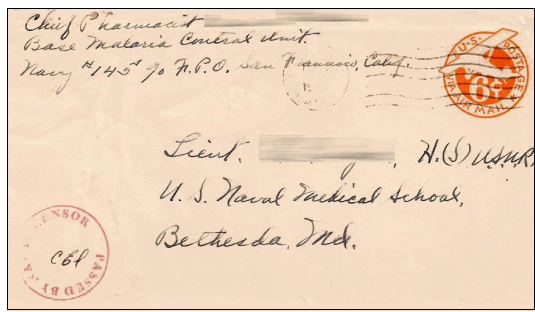 Chief Pharmacist
Base Malaria Control Unit.
Navy #145 c/o F.P.O. San Francisco, Calif.
U.S. POSTAGE
VIA AIR MAIL
6¢
Lieut. , H.(S) U.S.N.R.
U. S. Naval Medical School,
Bethesda, Md.
PASSED BY NA CENSOR